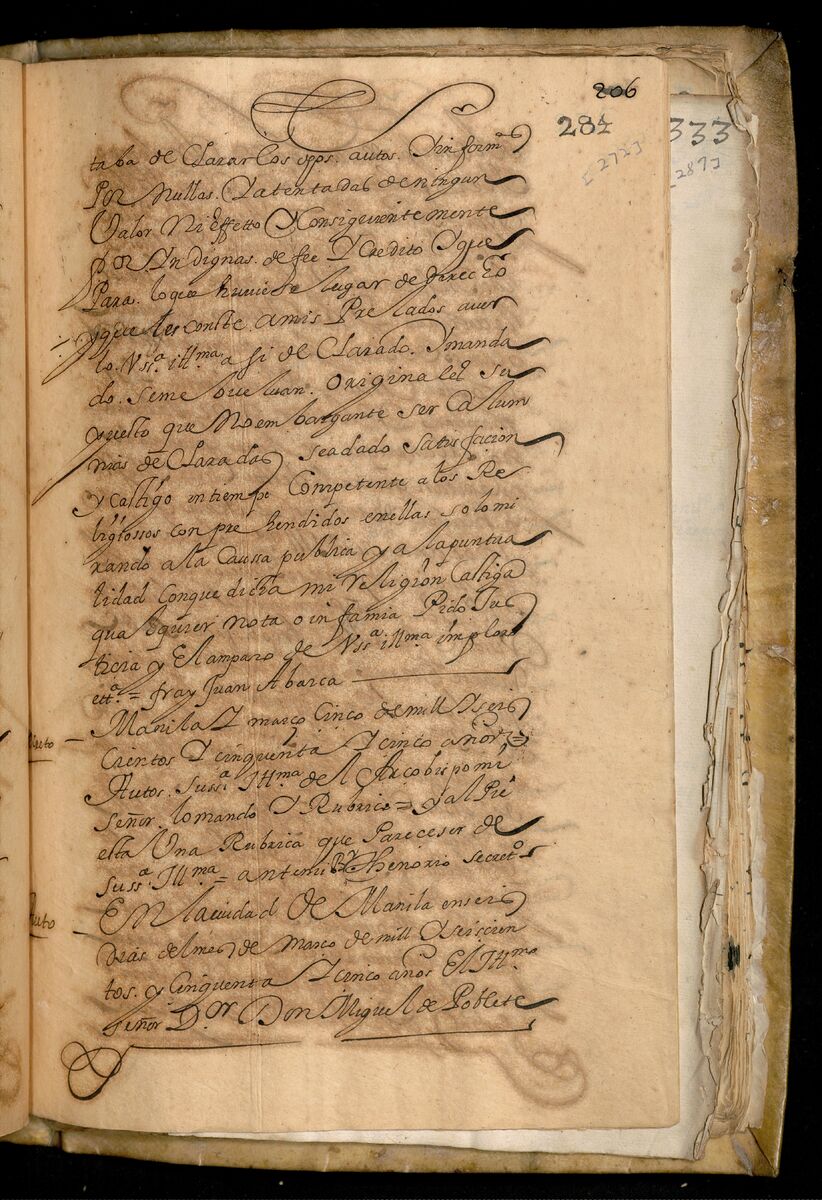 206
284
333
[272]
[287]
taba de Clararlos opps. autos. Yinform.ᵉˢ
Por Nullas. Yatentadas deningun
Valor NiEffetto YConsiguientemente
por Yndignas. de fee YCredito Yque
Para. loque huuiese lugar de Jarecho
yque les conste. amis Prelados auer
lo. Vss.ª ill.ma a si de Clarado. Ymanda
do. Semebueluan. originales su
puesto que Noembargante ser Calum
nias de Claradas seadado satisfacion
y castigo entiempo Competente alos Re
ligiossos conprehendidos enellas solomi
rando ala Caussa publica y alapuntua
lidad Conque dicha mi Religion Castiga
qualquier nota oinfamia Pido Jus
ticia y Elamparo de Vss.ª ill.ma imploro
ett.ª = fray Juan Abarca
Manila Y março Cinco demill Yseis
cientos Y cinquenta Y cinco años =
Autos. Suss.ª Ill.ma del Arcobispo mi
Señor lomando Y Rubrico = yalPie
esta Una Rubrica que Pareceser de
suss.ª Ill.ma = antemi Thenorio secret.º
Auto
En laciudad De Manila enseis
dias delmes de março de mill Yseiscien
tos. y Cinquenta Y cinco años El Ill.mo
señor D.or Don Miguel de Poblete